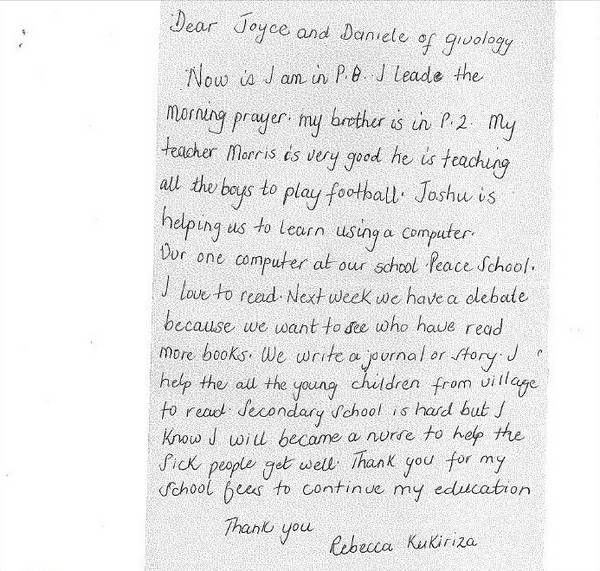 Dear Joyce and Daniele of givology
Now is I am in P.8. I leade the
morning prayer. my brother is in P.2. My
teacher Morris is very good he is teaching
all the boys to play football. Joshu is
helping us to learn using a computer.
Our one computer at our school Peace School.
I love to read. Next week we have a debate
because we want to see who have read
more books. We write a journal or story. I
help the all the young children from village
to read. Secondary School is hard but I
Know I will became a nurse to help the
Sick people get well. Thank you for my
school fees to continue my education
Thank you
Rebecca Kukiriza